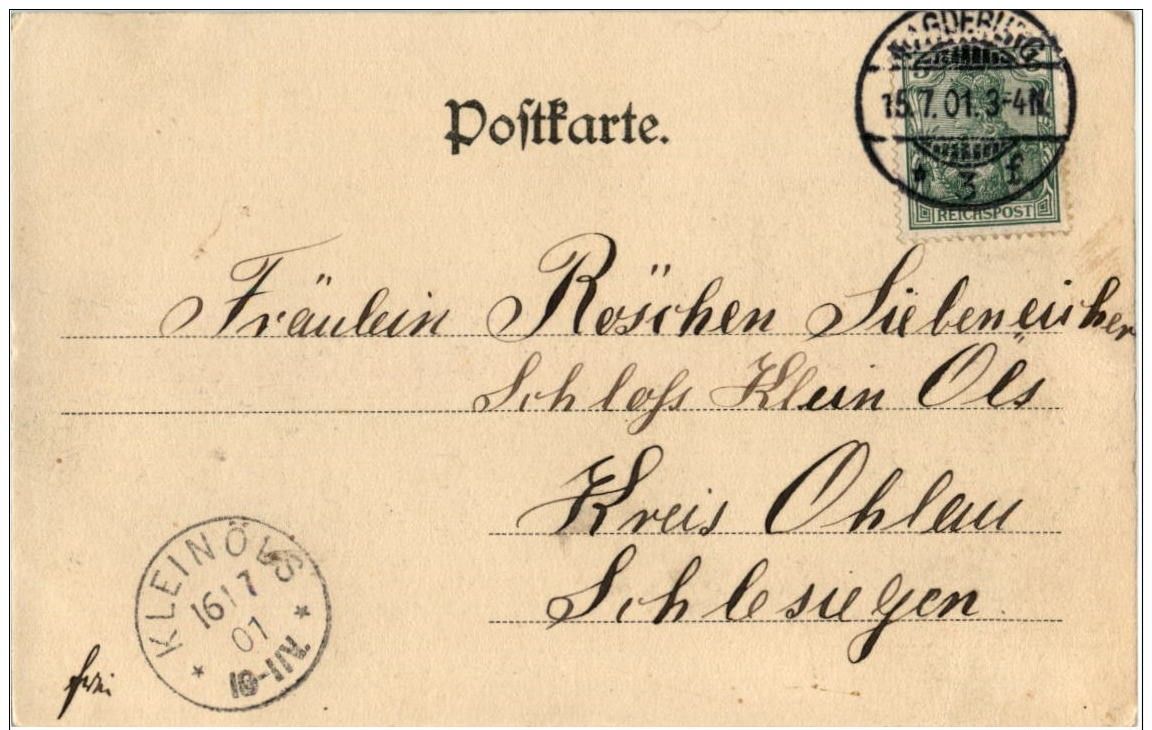 MAGDEBURG
15.7.01.3-4N.
* 3 f
5 5
REICHSPOST
Postkarte.
Fräulein Röschen Siebeneicher
Schloß Klein Öls
Kreis Ohlau
Schlesiegen
KLEINÖLS
16/7
01
10-11V.
frei